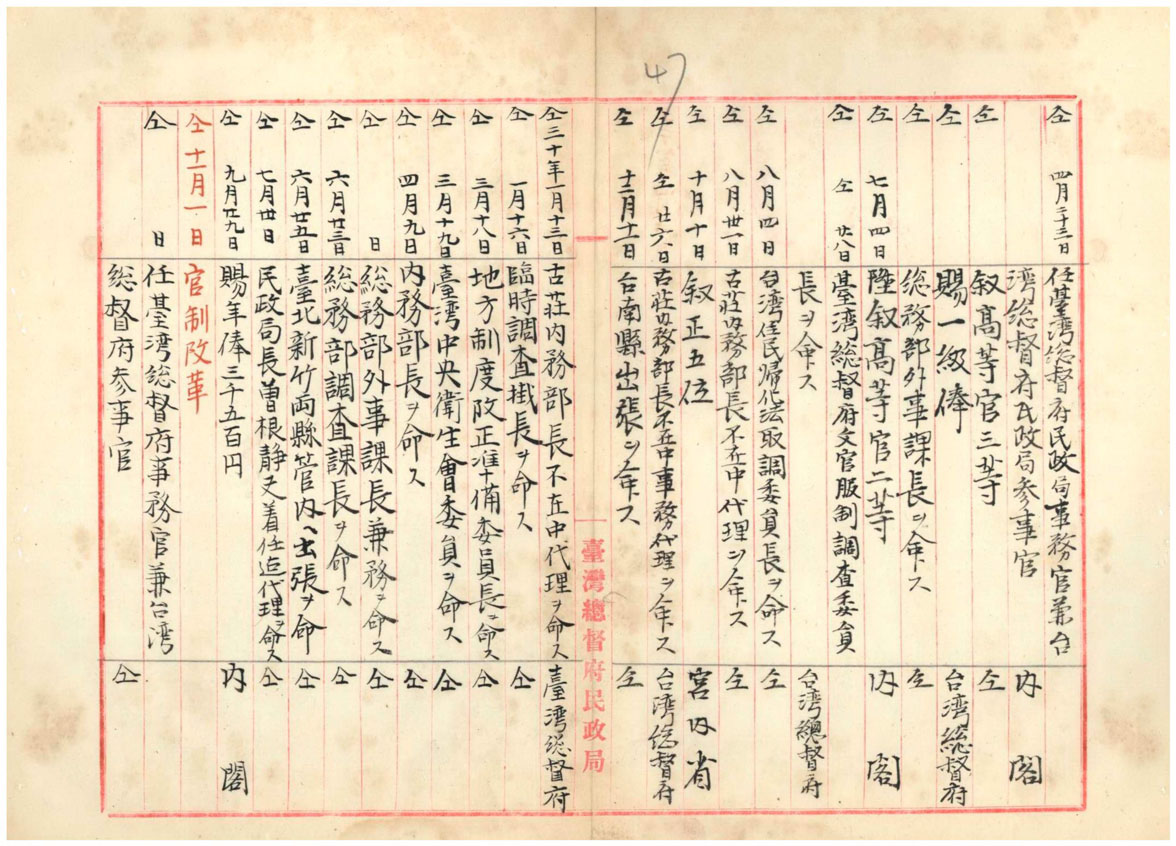 47
仝 四月二十三日 任臺湾総督府民政局事務官兼台 内閣
湾総督府民政局参事官
仝 叙高等官三等 仝
仝 賜一級俸 台湾総督府
仝 総務部外事課長ヲ命ス 仝
仝 七月四日 陞叙高等官二等 内閣
仝 仝廿八日 臺湾総督府文官服制調査委員
長ヲ命ス 台湾總督府
仝 八月四日 台湾住民帰化法取調委員長ヲ命ス 仝
仝 八月卅一日 古荘内務部長不在中代理ヲ命ス 仝
仝 十月十日 叙正五位 宮内省
仝 仝廿六日 古荘内務部長不在中事務代理ヲ命ス 台湾総督府
仝 十二月十一日 台南縣出張ヲ命ス 仝
臺灣總督府民政局
仝三十年一月十三日 古荘内務部長不在中代理ヲ命ス 臺湾総督府
仝 一月十六日 臨時調査掛長ヲ命ス 仝
仝 三月十八日 地方制度改正準備委員長ヲ命ス 仝
仝 三月十九日 臺灣中央衛生會委員ヲ命ス 仝
仝 四月九日 内務部長ヲ命ス 仝
仝 日 総務部外事課長兼務ヲ命ス 仝
仝 六月廿三日 総務部調査課長ヲ命ス 仝
仝 六月廿五日 臺北新竹両縣管内ヘ出張ヲ命ス 仝
仝 七月廿日 民政局長曽根静夫着任迄代理ヲ命ス 仝
仝 九月廿九日 賜年俸三千五百円 内閣
仝十一月一日 官制改革
仝 日 任臺湾総督府事務官兼台湾 仝
総督府参事官